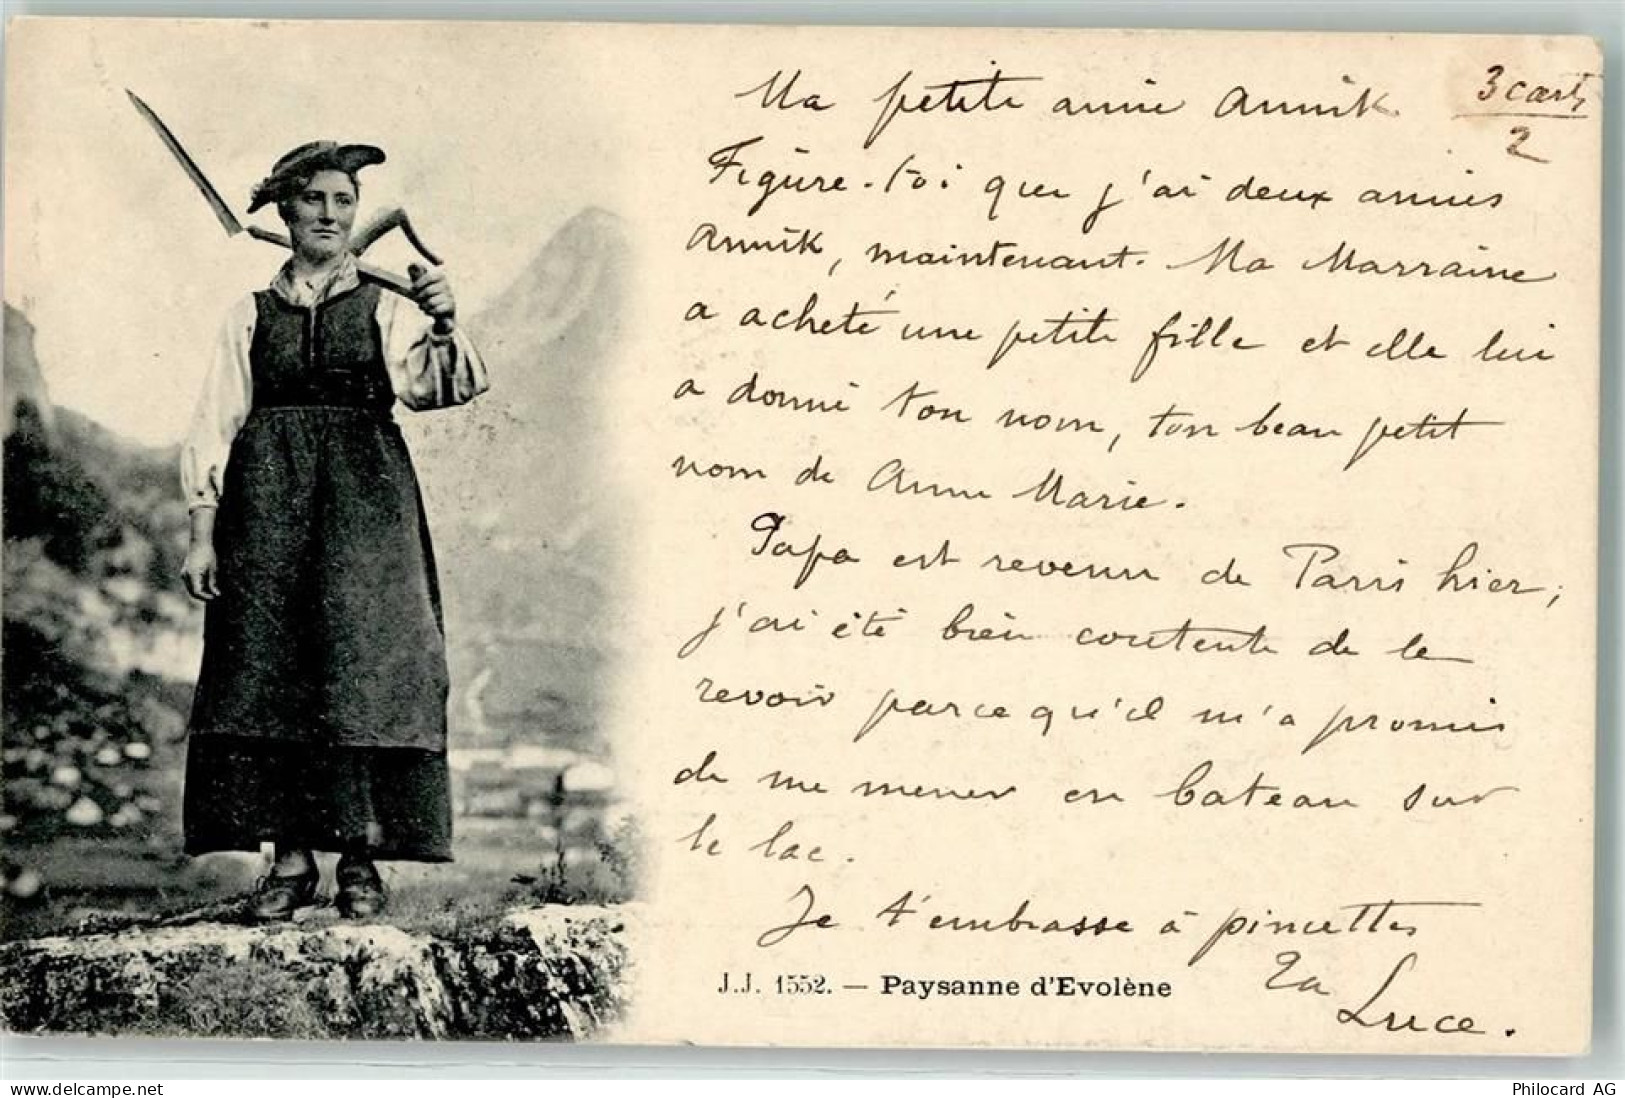 Ma petite amie Annik
3 carts
2
Figure-toi que j'ai deux amies
Annik, maintenant. Ma Marraine
a acheté une petite fille et elle lui
a donné ton nom, ton beau petit
nom de Anne Marie.
Papa est revenu de Paris hier;
j'ai été bien contente de le
revoir parce qu'il m'a promis
de me mener en bateau sur
le lac.
Je t'embrasse à pincettes
Ta
Luce.
J.J. 1552. — Paysanne d'Evolène
www.delcampe.net
Philocard AG